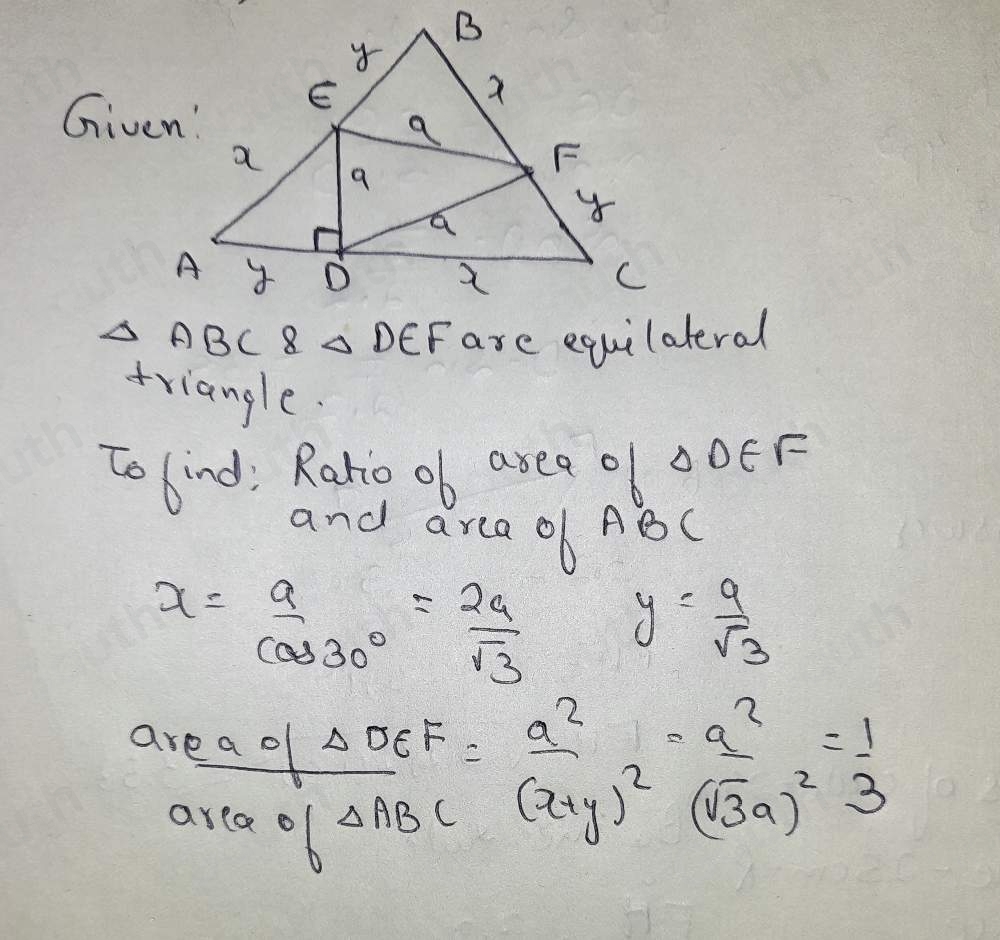 B
y
x
E
Given:
a
F
x
a
y
a
A
y
D
x
C
△ ABC & △ DEF are equilateral
triangle.
To find: Ratio of area of △ DEF
and area of ABC
x = a/cos30° = 2a/√3 y = a/√3
area of △ DEF/area of △ ABC = a²/(x+y)² = a²/(√3a)² = 1/3